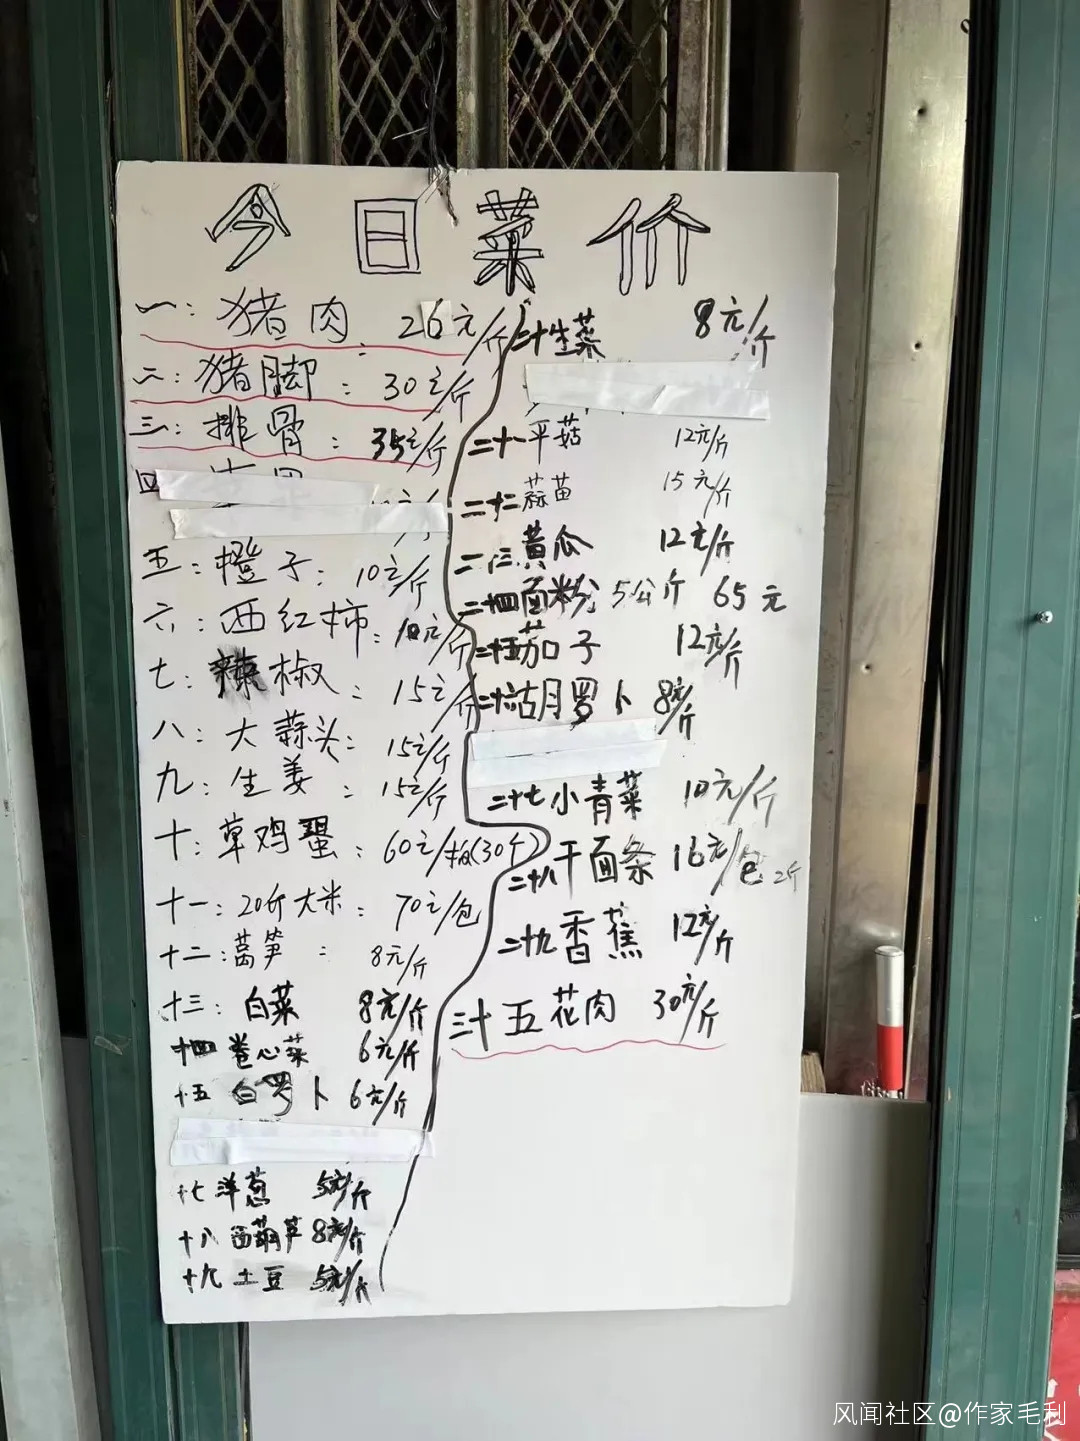 今日菜价
一：猪肉：26元/斤
二：猪脚：30元/斤
三：排骨：35元/斤
四
五：橙子：10元/斤
六：西红柿：10元/斤
七：辣椒：15元/斤
八：大蒜头：15元/斤
九：生姜：15元/斤
十：草鸡蛋：60元/板(30个)
十一：20斤大米：70元/包
十二：莴笋：8元/斤
十三：白菜 8元/斤
十四 卷心菜 6元/斤
十五 白罗卜 6元/斤
十七 洋葱 5元/斤
十八 西葫芦 8元/斤
十九 土豆 5元/斤
二十生菜 8元/斤
二十一平菇 12元/斤
二十二蒜苗 15元/斤
二十三黄瓜 12元/斤
二十四面粉 5公斤 65元
二十五茄子 12元/斤
二十六胡罗卜 8元/斤
二十七小青菜 10元/斤
二十八干面条 16元/包 2斤
二十九香蕉 12元/斤
三十五花肉 30元/斤
风闻社区@作家毛利